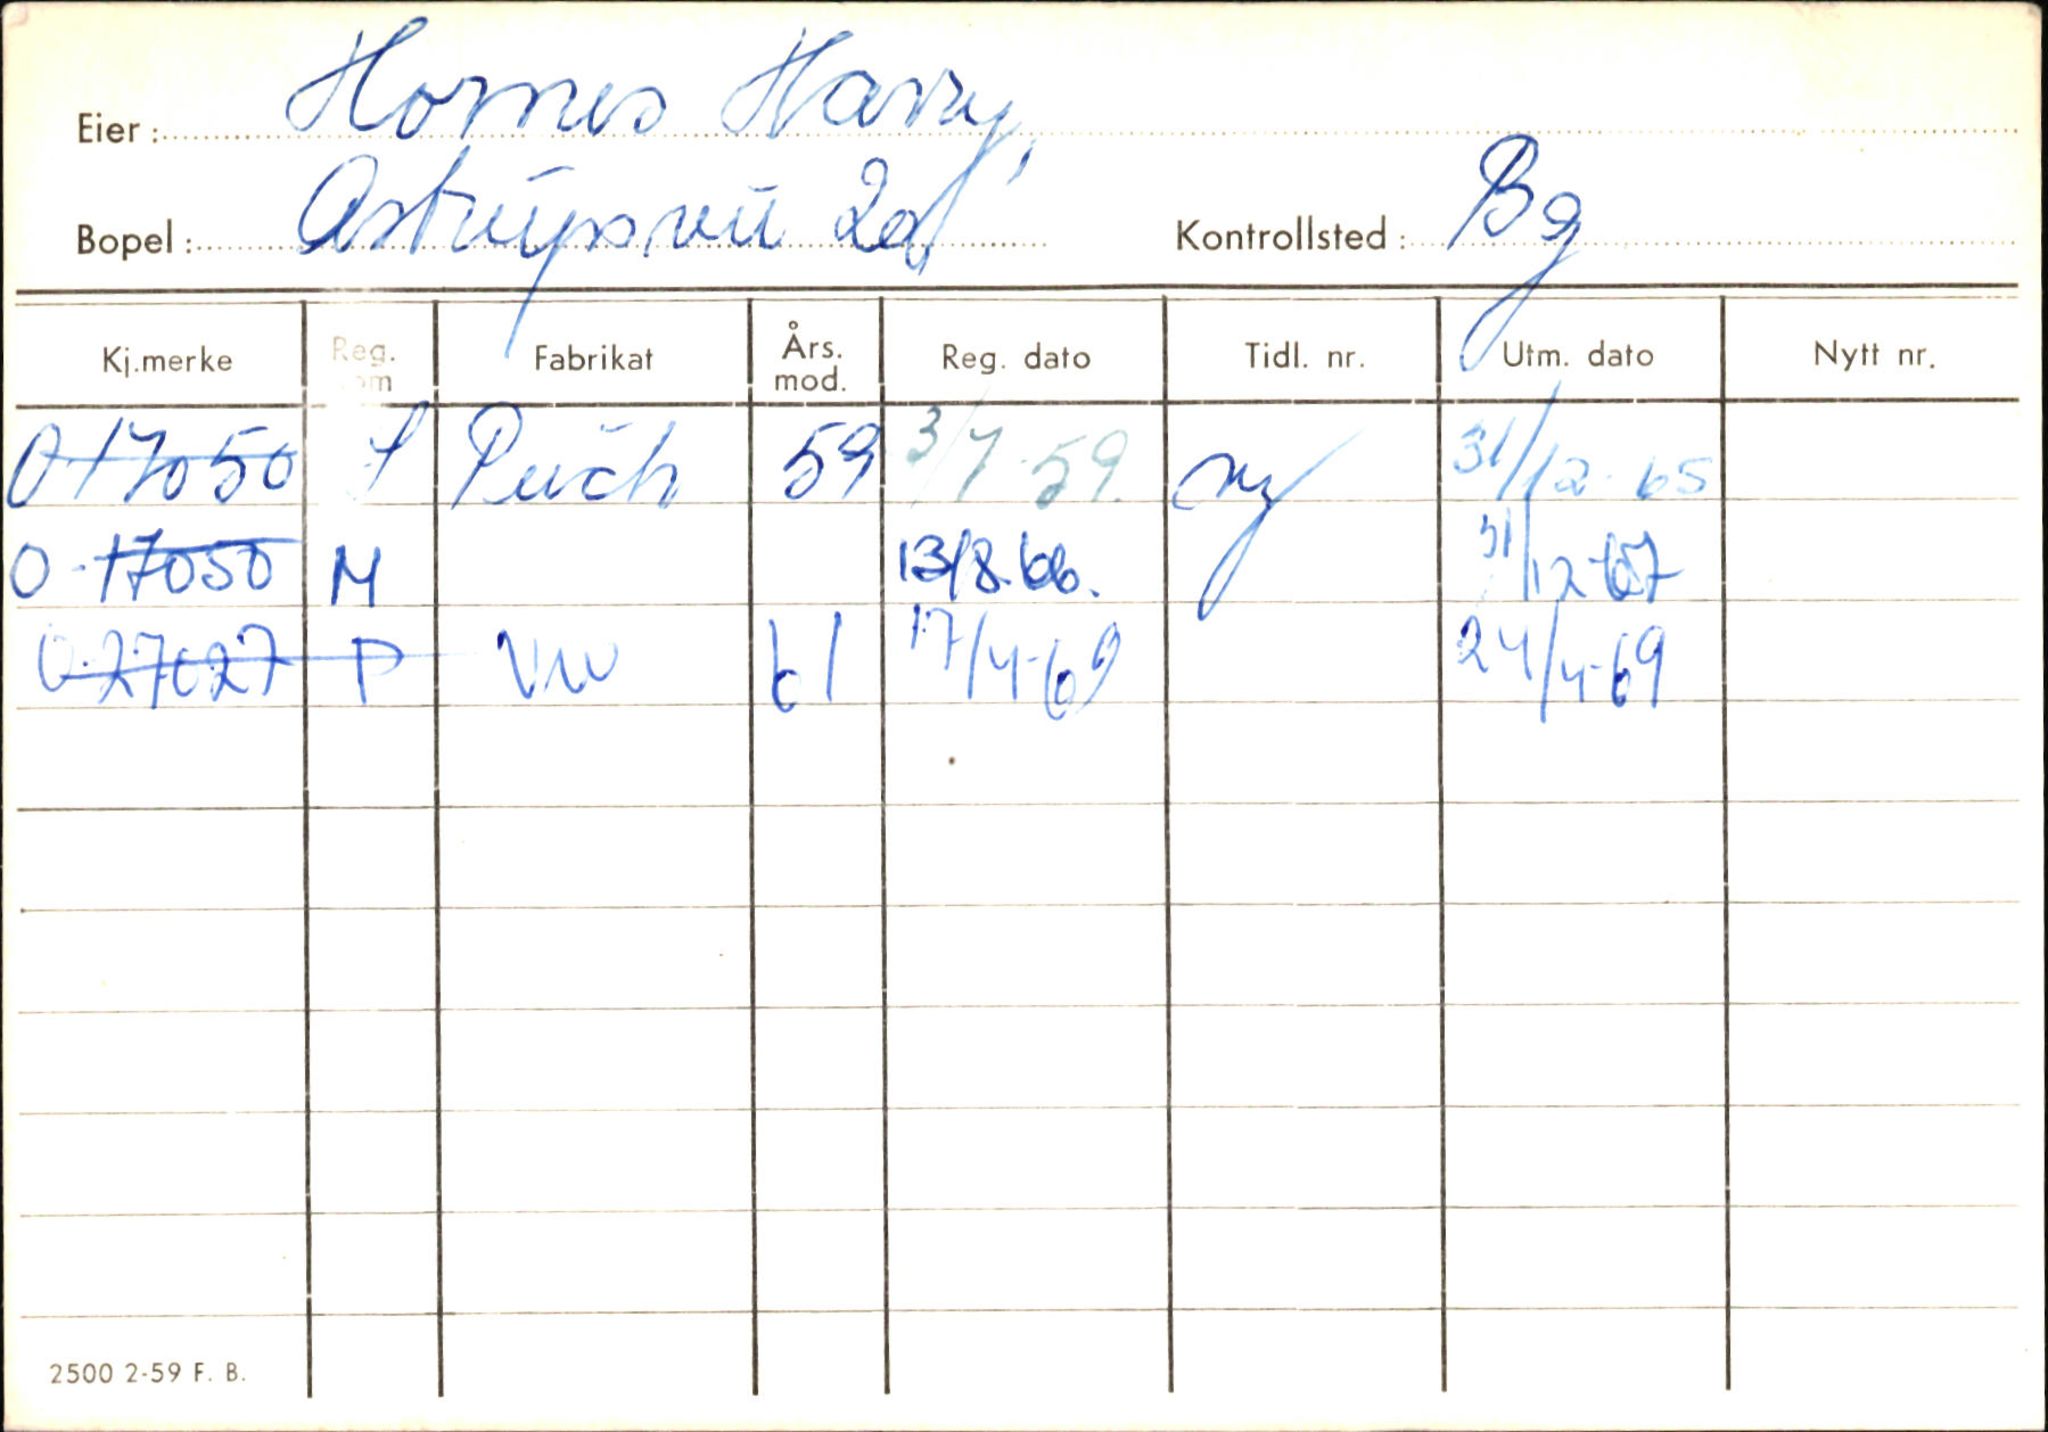 Eier: Hornes Harry,
Bopel: Astrupsvei 2d Kontrollsted: Bg
Kj.merke Reg. som Fabrikat Års. mod. Reg. dato Tidl. nr. Utm. dato Nytt nr.
O-17050 S Puch 59 3/7-59. ny 31/12-65
O-17050 M 13/8.66. 31/12-67
O-27027 P VW 61 17/4-69 24/4-69
2500 2-59 F. B.